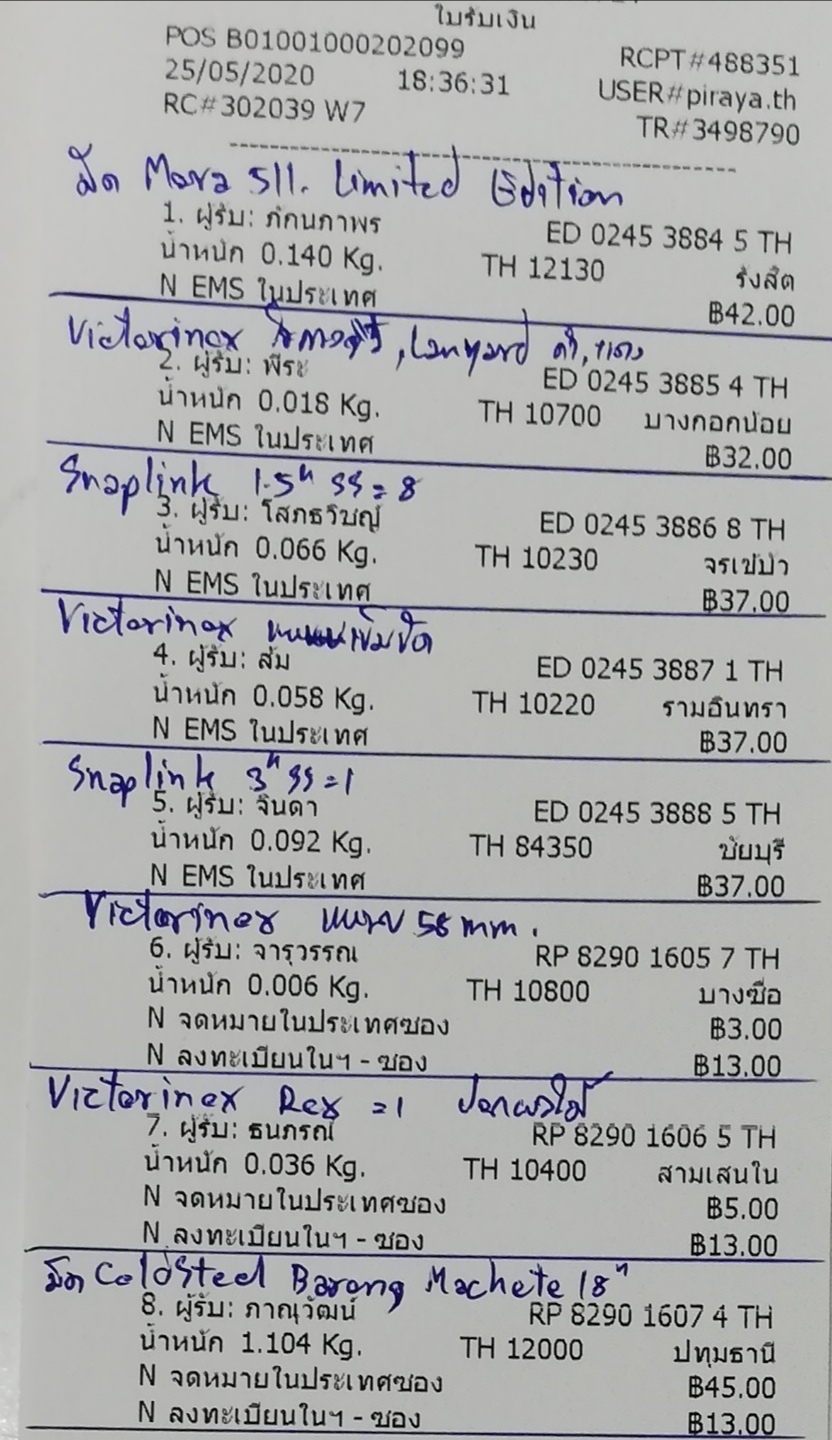 ใบรับเงิน
POS B01001000202099 RCPT#488351
25/05/2020 18:36:31 USER#piraya.th
RC#302039 W7 TR#3498790
มีด Mora 511. Limited Edition
1. ผู้รับ: ภักนภาพร ED 0245 3884 5 TH
น้ำหนัก 0.140 Kg. TH 12130 รังสิต
N EMS ในประเทศ ฿42.00
Victorinox , Lanyard ดำ, แดง
2. ผู้รับ: พีระ ED 0245 3885 4 TH
น้ำหนัก 0.018 Kg. TH 10700 บางกอกน้อย
N EMS ในประเทศ ฿32.00
Snaplink 1.5" SS = 8
3. ผู้รับ: โสภธวิชญ์ ED 0245 3886 8 TH
น้ำหนัก 0.066 Kg. TH 10230 จรเข้บัว
N EMS ในประเทศ ฿37.00
Victorinox เข็มขัด
4. ผู้รับ: ส้ม ED 0245 3887 1 TH
น้ำหนัก 0.058 Kg. TH 10220 รามอินทรา
N EMS ในประเทศ ฿37.00
Snaplink 3" SS = 1
5. ผู้รับ: จินดา ED 0245 3888 5 TH
น้ำหนัก 0.092 Kg. TH 84350 ชัยบุรี
N EMS ในประเทศ ฿37.00
Victorinox แหนบ 58 mm.
6. ผู้รับ: จารุวรรณ RP 8290 1605 7 TH
น้ำหนัก 0.006 Kg. TH 10800 บางซื่อ
N จดหมายในประเทศซอง ฿3.00
N ลงทะเบียนในฯ - ซอง ฿13.00
Victorinox Rex = 1 ปอกผลไม้
7. ผู้รับ: ธนภรณ์ RP 8290 1606 5 TH
น้ำหนัก 0.036 Kg. TH 10400 สามเสนใน
N จดหมายในประเทศซอง ฿5.00
N ลงทะเบียนในฯ - ซอง ฿13.00
มีด ColdSteel Barong Machete 18"
8. ผู้รับ: ภาณุวัฒน์ RP 8290 1607 4 TH
น้ำหนัก 1.104 Kg. TH 12000 ปทุมธานี
N จดหมายในประเทศซอง ฿45.00
N ลงทะเบียนในฯ - ซอง ฿13.00